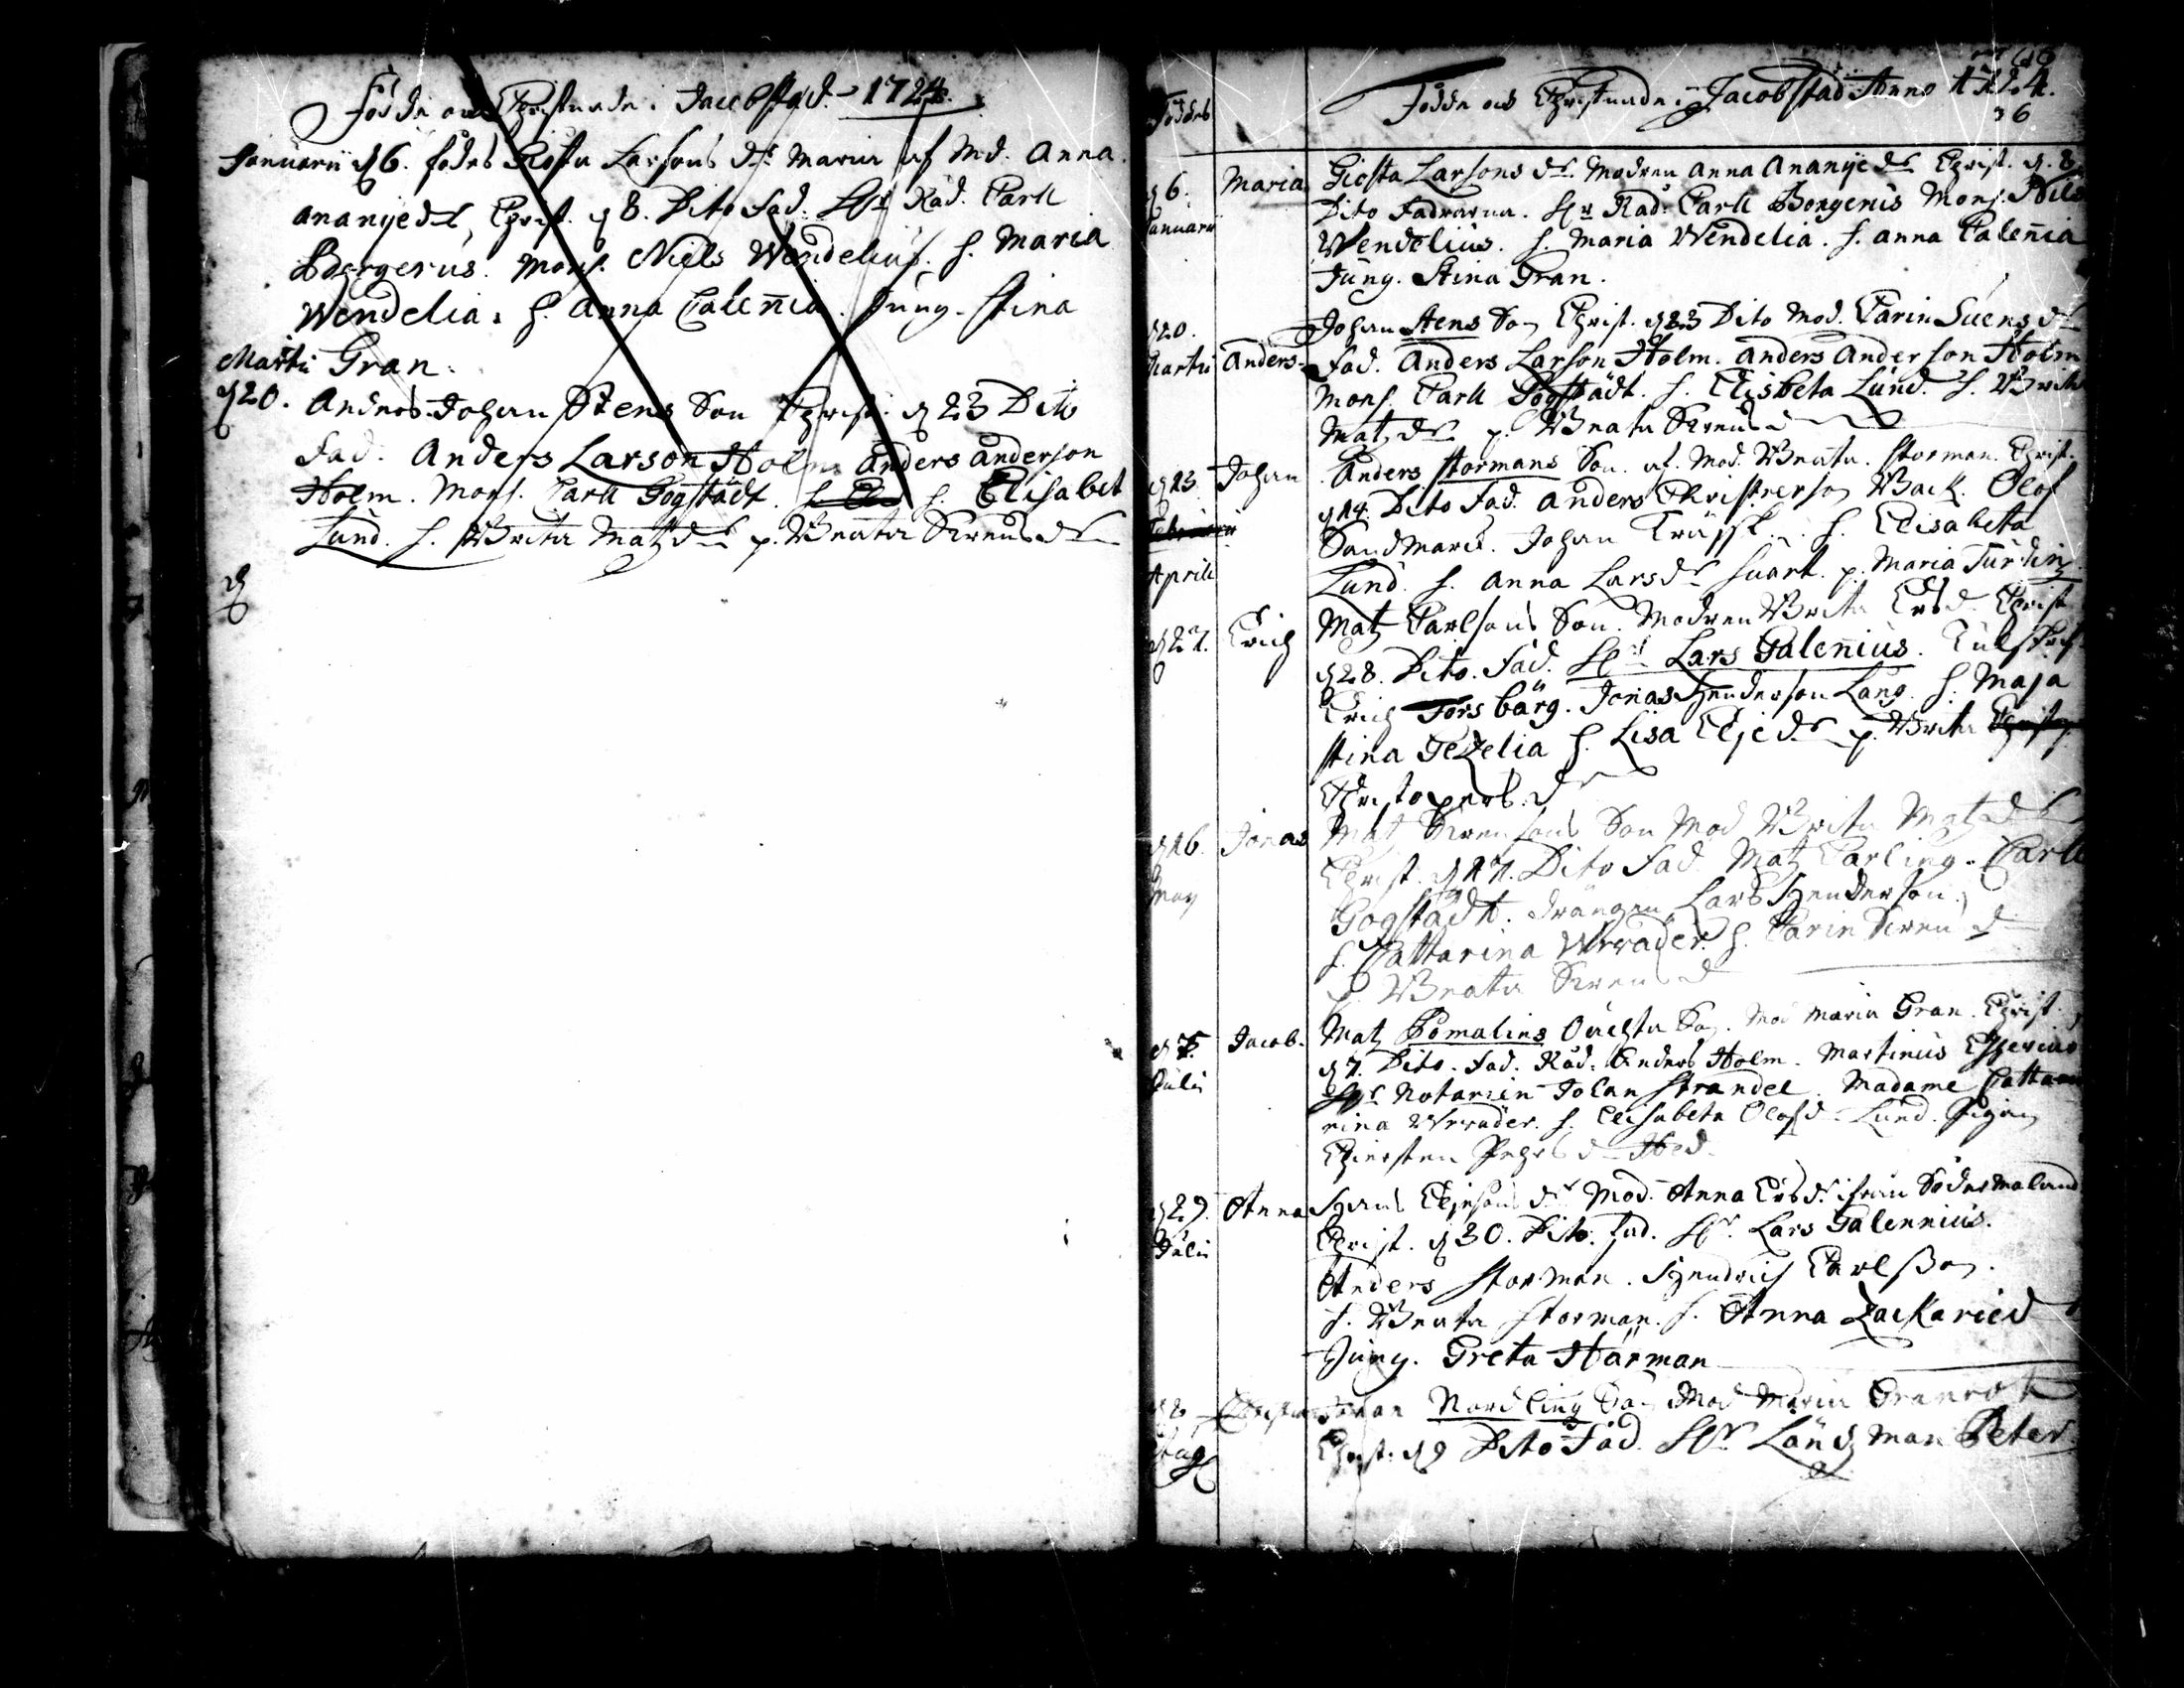 Födde och Christnade i Jacobstad. 1724.
Januarii d 6. födes Giösta Larsons dr Maria af Md. Anna
Ananyedr, Christ. d 8. Dito Fad. Hr Råd. Carll
Borgerus. Mons. Niels Wendelius. h. Maria
Wendelia. h. Anna Calenia. Jung. Stina
Martii Gran.
d 20. Anders Johan Stens Son Christ. d 23 Dito
Fad. Anders Larson Holm Anders Anderson
Holm. Mons. Carll Gogstädt. h. Elisabet
Lund. h. Brita Matzdr p. Beata Svensdr
d
Föddes
Födde och Christnade i Jacobstad Anno 1724.
36
d 6. Januarii Maria Giösta Larsons dr. Modren Anna Ananyedr Christ. d. 8
Dito Fadrarna. Hr Råd. Carll Borgerus Mons. Nils
Wendelius. h. Maria Wendelia. h. Anna Calenia
Jung. Stina Gran.
d 20. Martii Anders Johan Stens Son Christ. d 23 Dito Mod. Carin Suensdr
Fad. Anders Larson Holm. Anders Anderson Holm
Mons. Carll Gogstädt. h. Elisbeta Lund. h. Brita
Matzdr p. Beata Svensdr
d 13. Aprili Johan Anders Stormans Son. af. Mod. Beata Storman. Christ.
d 14. Dito Fad. Anders Christerson Back. Olof
Sandmark. Johan Träsk. h. Elisabeta
Lund. h. Anna Larsdr Suart. p. Maria Turdin
d 27. Erich Matz Carlsons Son. Modren Brita Ersdr Christ
d 28. Dito. Fad. Hr Lars Galenius.
Erich Forsbärg. Jonas Henderson Lang. h. Maja
Stina Gezelia h. Lisa Eljedr p. Brita
Christopersdr
d 16. May Jonas Matz Svensons Son Mod Brita Matzdr
Christ. d 17. Dito Fad. Matz Carling. Carll
Gogstädt. drängen Lars Henderson.
h. Cattarina Wrrader. h. Carin Svensdr
p. Beata Svensdr
Julii Jacob. Matz Pomalins Oächta Son. Mod Maria Gran. Christ.
d 7. Dito. Fad. Råd. Anders Holm. Martinus
Hr Notarien Johan Strandel. Madame Catta
rina Wrrader. h. Elisabeta Olofsdr Lund. Pigan
Chiersten Pehrsdr Hed.
d 29. Julii Anna Hans Eljesons dr Mod. Anna Ersdr ifrån Södermaland
Christ. d 30. Dito. Fad. Hr. Lars Galennius.
Anders Storman. Hendrich Carlsson.
h. Beata Storman. h. Anna Zackariedr
Jung. Greta Härman
Aug Johan Nordling Son Mod Maria
Christ. d 9 Dito Fad. Hr Länsman Peter